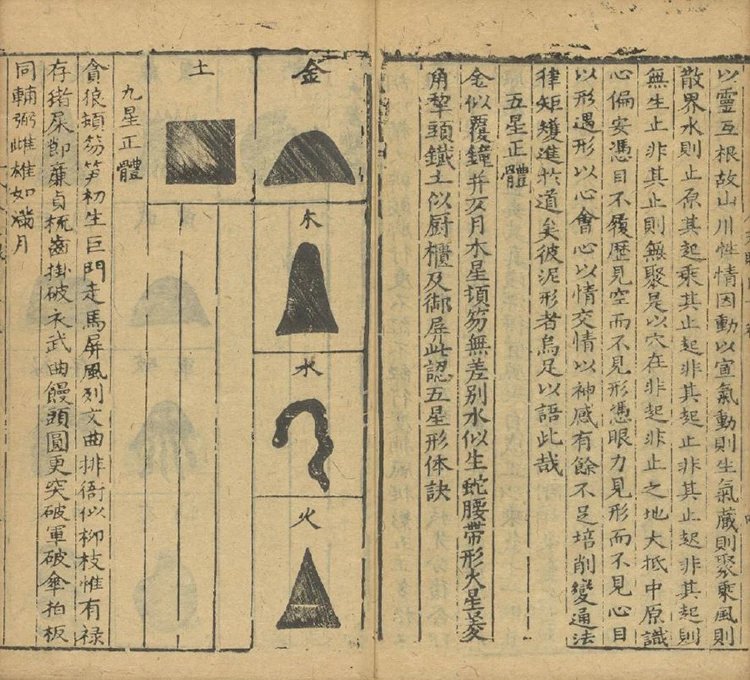 以靈互根故山川性情因動以宣氣動則生氣蔵則聚乘風則
散界水則止原其起乘其止起非其起止非其止起非其起則
無生止非其止則無聚是以穴在非起非止之地大抵中原識
心偏安憑目不履歷見空而不見形憑眼力見形而不見心目
以形遇形以心會心以情交情以神感有餘不足培削變通法
律矩矱進於道矣彼泥形者烏足以語此哉
五星正體
金似覆鐘并仄月木星頓笏無差別水似生蛇腰帶形火星菱
角犂頭鐵土似厨櫃及御屏此認五星形体訣
金
木
水
火
土
九星正體
貪狼頓笏笋初生巨門走馬屏風列文曲排衙似柳枝惟有禄
存猪屎節廉貞梳齒掛破衣武曲饅頭圓更突破軍破傘拍板
同輔弼雌雄如滿月